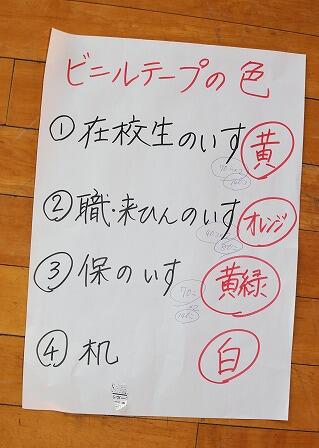 ビニルテープの色
①在校生のいす 黄
②職・来ひんのいす オレンジ
③保のいす 黄緑
70コ
④机 白